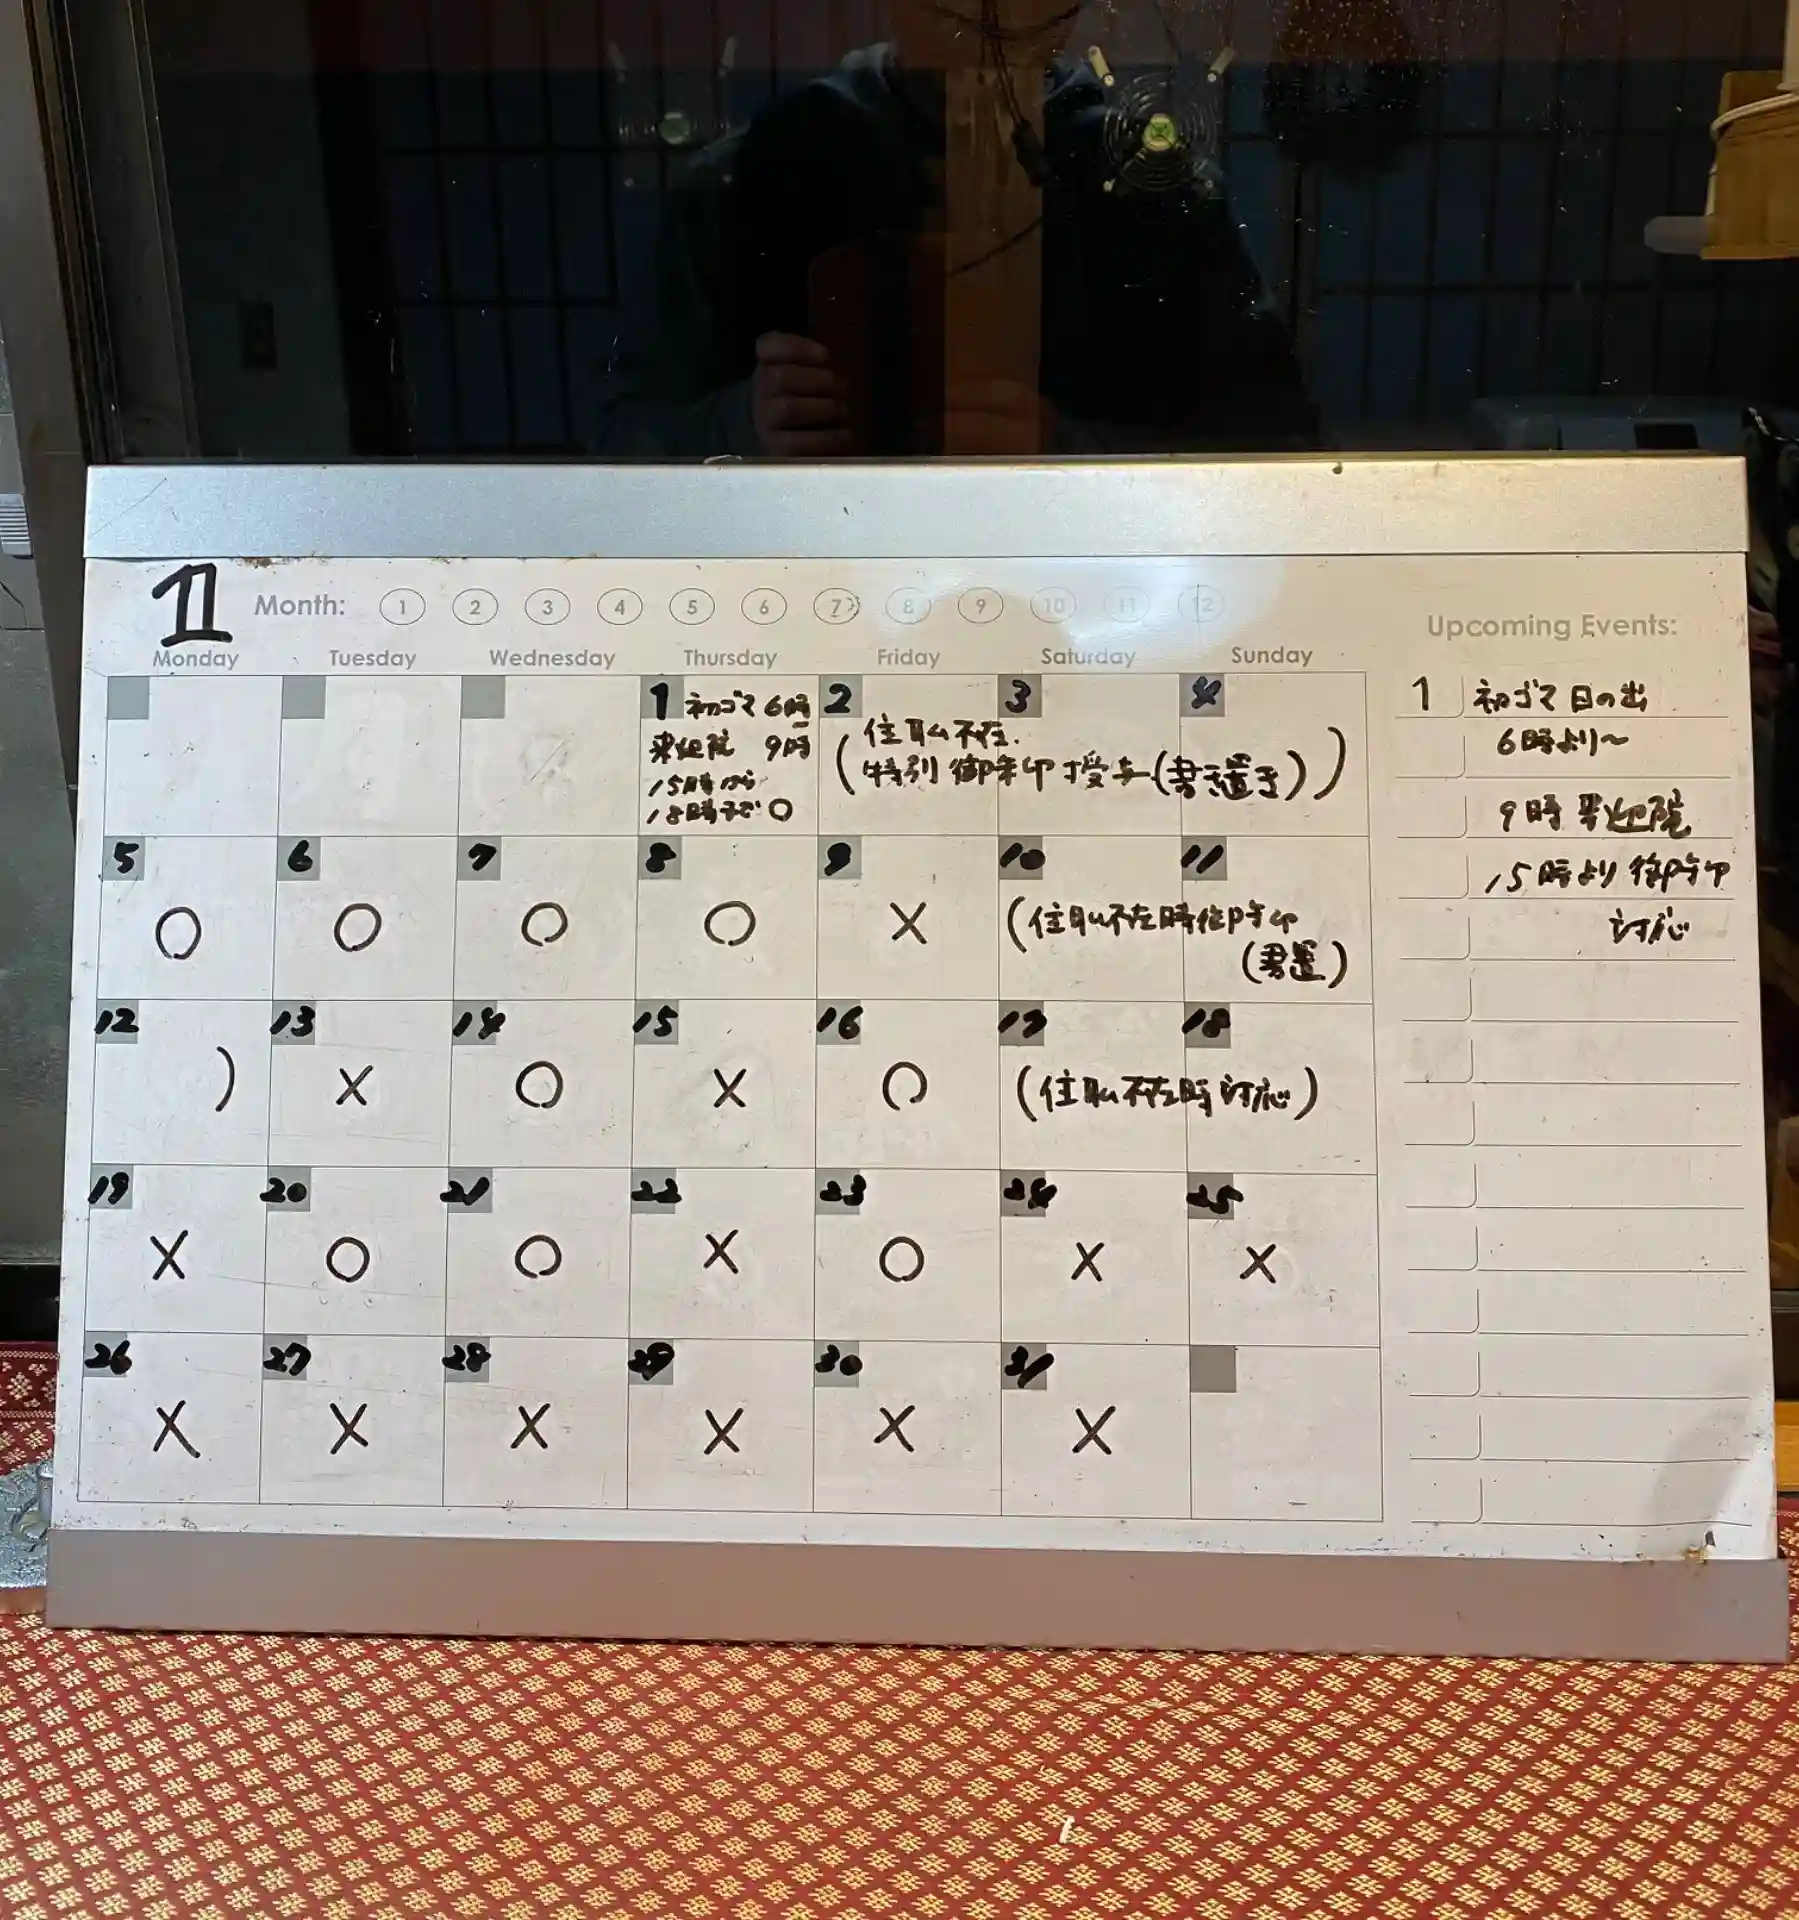 1 Month: 1 2 3 4 5 6 7 8 9 10 11 12
Upcoming Events:
Monday Tuesday Wednesday Thursday Friday Saturday Sunday
1 初ゴマ 6時
9時
15時から
18時まで ○
2 3 4
(住職不在.
特別御朱印授与(書き置き))
5 6 7 8 9 10 11
○ ○ ○ ○ × (住職不在時御朱印
(書置)
12 13 14 15 16 17 18
) × ○ × ○ (住職不在時対応)
19 20 21 22 23 24 25
× ○ ○ × ○ × ×
26 27 28 29 30 31
× × × × × ×
1 初ゴマ 日の出
6時より〜
9時
15時より 御朱印
対応